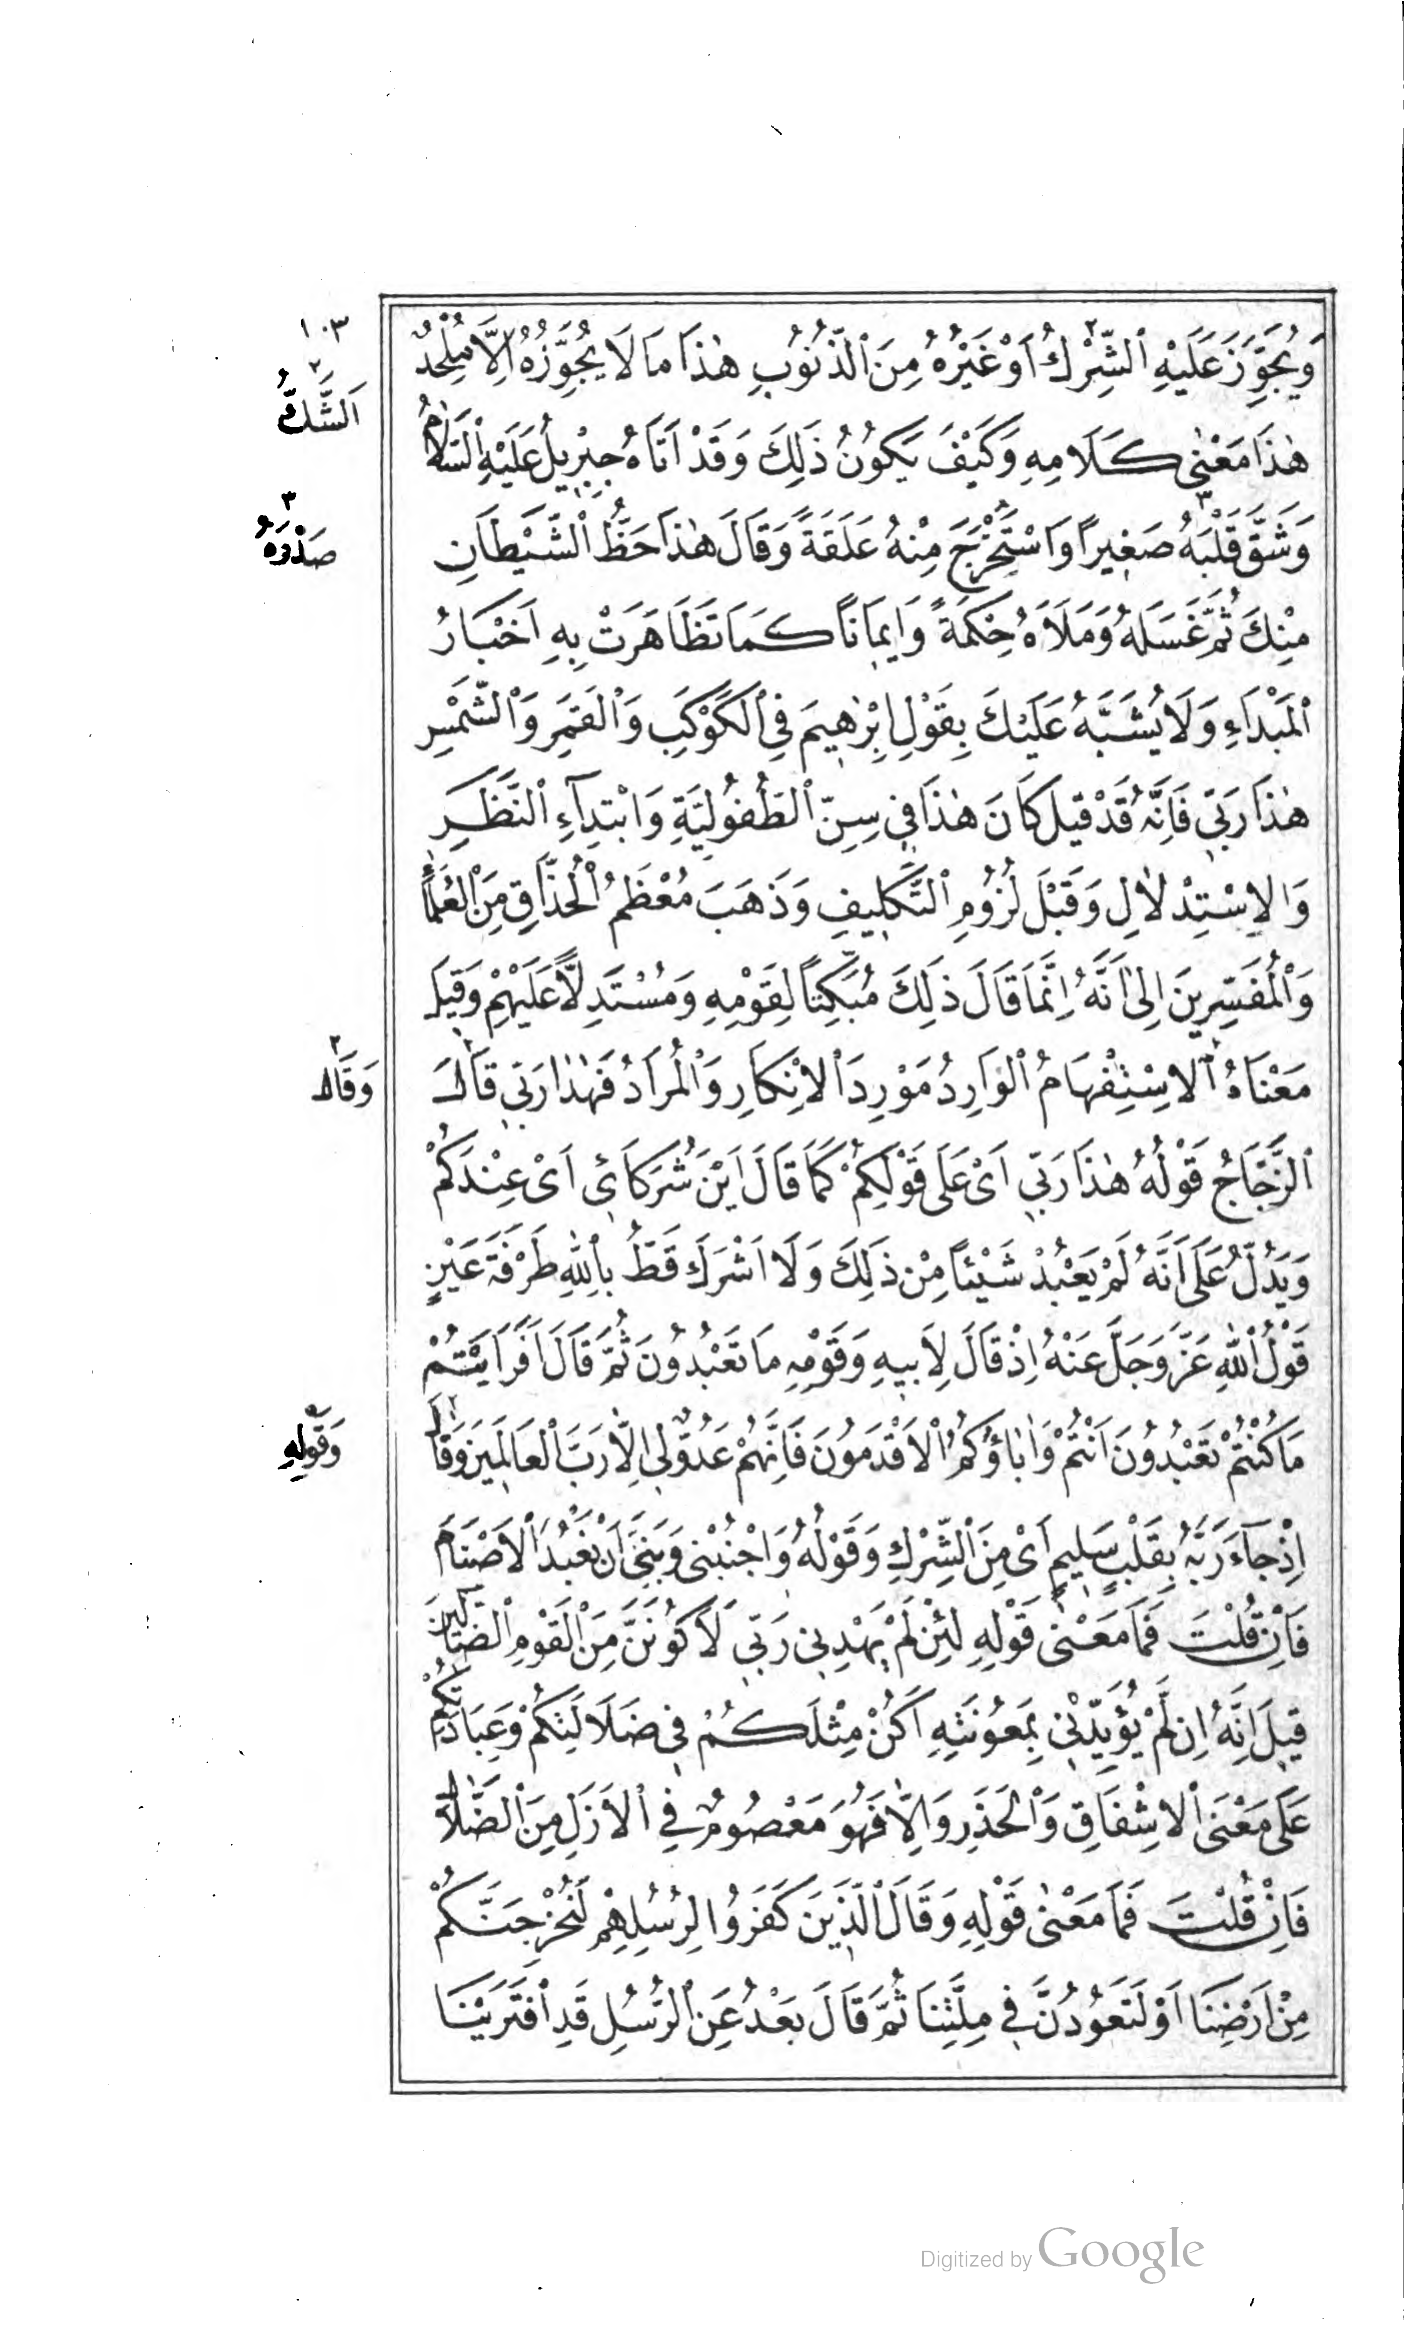 ١٠٣
وَيُجَوِّزَ عَلَيْهِ ٱلشِّرْكُ ٢ اَوْ غَيْرُهُ مِنَ ٱلذُّنُوبِ هٰذَا مَا لَا يُجَوِّزُهُ اِلَّا مُلْحِدٌ
٢ اَلشَّكُّ
هٰذَا مَعْنٰى كَلَامِهِ وَكَيْفَ يَكُونُ ذٰلِكَ وَقَدْ اَتَاهُ جِبْرِيلُ عَلَيْهِ ٱلسَّلَامُ
وَشَقَّ قَلْبَهُ ٣ صَغِيرًا وَاسْتَخْرَجَ مِنْهُ عَلَقَةً وَقَالَ هٰذَا حَظُّ ٱلشَّيْطَانِ
٣ صَدْرَهُ
مِنْكَ ثُمَّ غَسَلَهُ وَمَلَاَهُ حِكْمَةً وَاِيمَانًا كَمَا تَظَاهَرَتْ بِهِ اَخْبَارُ
ٱلْمَبْدَاءِ وَلَا يُشَبَّهُ عَلَيْكَ بِقَوْلِ اِبْرٰهِيمَ فِى ٱلْكَوْكَبِ وَٱلْقَمَرِ وَٱلشَّمْسِ
هٰذَا رَبِّى فَاِنَّهُ قَدْ قِيلَ كَانَ هٰذَا فِى سِنِّ ٱلطُّفُولِيَّةِ وَابْتِدَآءِ ٱلنَّظَرِ
وَالْاِسْتِدْلَالِ وَقَبْلَ لُزُومِ ٱلتَّكْلِيفِ وَذَهَبَ مُعْظَمُ ٱلْحُذَّاقِ مِنَ ٱلْعُلَمَاءِ
وَٱلْمُفَسِّرِينَ اِلٰى اَنَّهُ اِنَّمَا قَالَ ذٰلِكَ مُبَكِّتًا لِقَوْمِهِ وَمُسْتَدِلًّا عَلَيْهِمْ وَقِيلَ
مَعْنَاهُ ٱلْاِسْتِفْهَامُ ٱلْوَارِدُ مَوْرِدَ ٱلْاِنْكَارِ وَٱلْمُرَادُ فَهٰذَا رَبِّى قَالَ ٢
٢ وَقَالَ
ٱلزَّجَّاجُ قَوْلُهُ هٰذَا رَبِّى اَىْ عَلَى قَوْلِكُمْ كَمَا قَالَ اَيْنَ شُرَكَائِى اَىْ عِنْدَكُمْ
وَيَدُلُّ عَلَى اَنَّهُ لَمْ يَعْبُدْ شَيْئًا مِنْ ذٰلِكَ وَلَا اَشْرَكَ قَطُّ بِٱللّٰهِ طَرْفَةَ عَيْنٍ
قَوْلُ ٱللّٰهِ عَزَّ وَجَلَّ عَنْهُ اِذْ قَالَ لِاَبِيهِ وَقَوْمِهِ مَا تَعْبُدُونَ ثُمَّ قَالَ اَفَرَاَيْتُمْ
مَا كُنْتُمْ تَعْبُدُونَ اَنْتُمْ وَاٰبَاؤُكُمُ ٱلْاَقْدَمُونَ فَاِنَّهُمْ عَدُوٌّ لِى اِلَّا رَبَّ ٱلْعَالَمِينَ وَقَالَ
وَقَوْلِهِ
اِذْ جَآءَ رَبَّهُ بِقَلْبٍ سَلِيمٍ اَىْ مِنَ ٱلشِّرْكِ وَقَوْلُهُ وَاجْنُبْنِى وَبَنِىَّ اَنْ نَعْبُدَ ٱلْاَصْنَامَ
فَاِنْ قُلْتَ فَمَا مَعْنٰى قَوْلِهِ لَئِنْ لَمْ يَهْدِنِى رَبِّى لَاَكُونَنَّ مِنَ ٱلْقَوْمِ ٱلضَّالِّينَ
قِيلَ اِنَّهُ اِنْ لَمْ يُؤَيِّدْنِى بِمَعُونَتِهِ اَكُنْ مِثْلَكُمْ فِى ضَلَالَتِكُمْ وَعِبَادَتِكُمْ
عَلَى مَعْنَى ٱلْاِشْفَاقِ وَٱلْحَذَرِ وَاِلَّا فَهُوَ مَعْصُومٌ فِى ٱلْاَزَلِ مِنَ ٱلضَّلَالِ
فَاِنْ قُلْتَ فَمَا مَعْنٰى قَوْلِهِ وَقَالَ ٱلَّذِينَ كَفَرُوا لِرُسُلِهِمْ لَنُخْرِجَنَّكُمْ
مِنْ اَرْضِنَا اَوْ لَتَعُودُنَّ فِى مِلَّتِنَا ثُمَّ قَالَ بَعْدُ عَنِ ٱلرُّسُلِ قَدِ ٱفْتَرَيْنَا
Digitized by Google